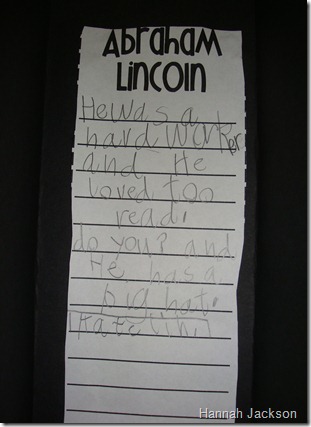 Abraham
Lincoln
He was a
hard worker
and He
loved too
read.
do you? and
He has a
big hat.
Katelin.
Hannah Jackson